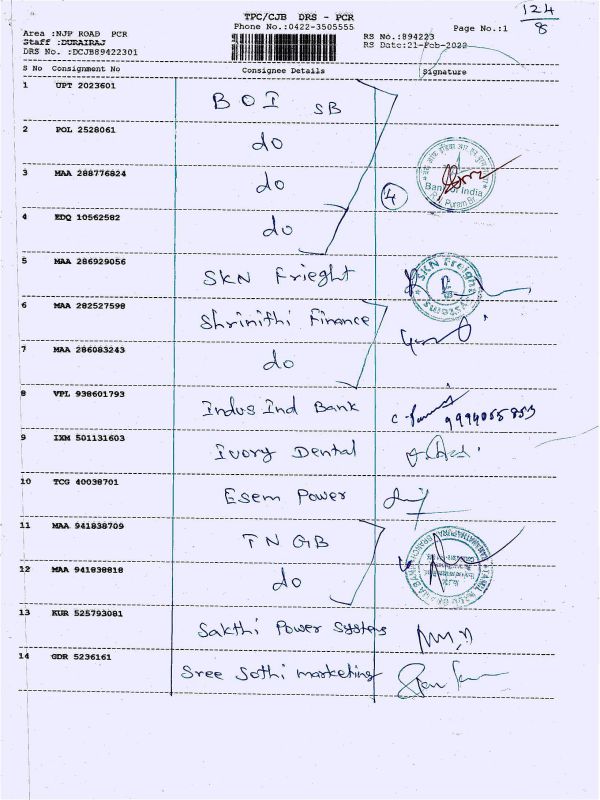 124
8
TPC/CJB DRS - PCR
Phone No.:0422-3505555
Page No.:1
Area :NJP ROAD PCR
Staff :DURAIRAJ
DRS No. :DCJB89422301
RS No.:894223
RS Date:21-Feb-2022
S No Consignment No Consignee Details Signature
1 UPT 2023601 BOI SB
2 POL 2528061 do
3 MAA 288776824 do
4 EDQ 10562582 do
4
Bank of India
R.S. Puram Br.
5 MAA 286929056 SKN Frieght
SKN Freight Systems
6 MAA 282527598 Shrinithi Finance
7 MAA 286083243 do
8 VPL 938601793 Indus Ind Bank
9 IXM 501131603 Ivory Dental
10 TCG 40038701 Esem Power
11 MAA 941838709 TNGB
12 MAA 941838818 do
13 KUR 525793081 Sakthi Power Systems
14 GDR 5236161 Sree Sothi marketing